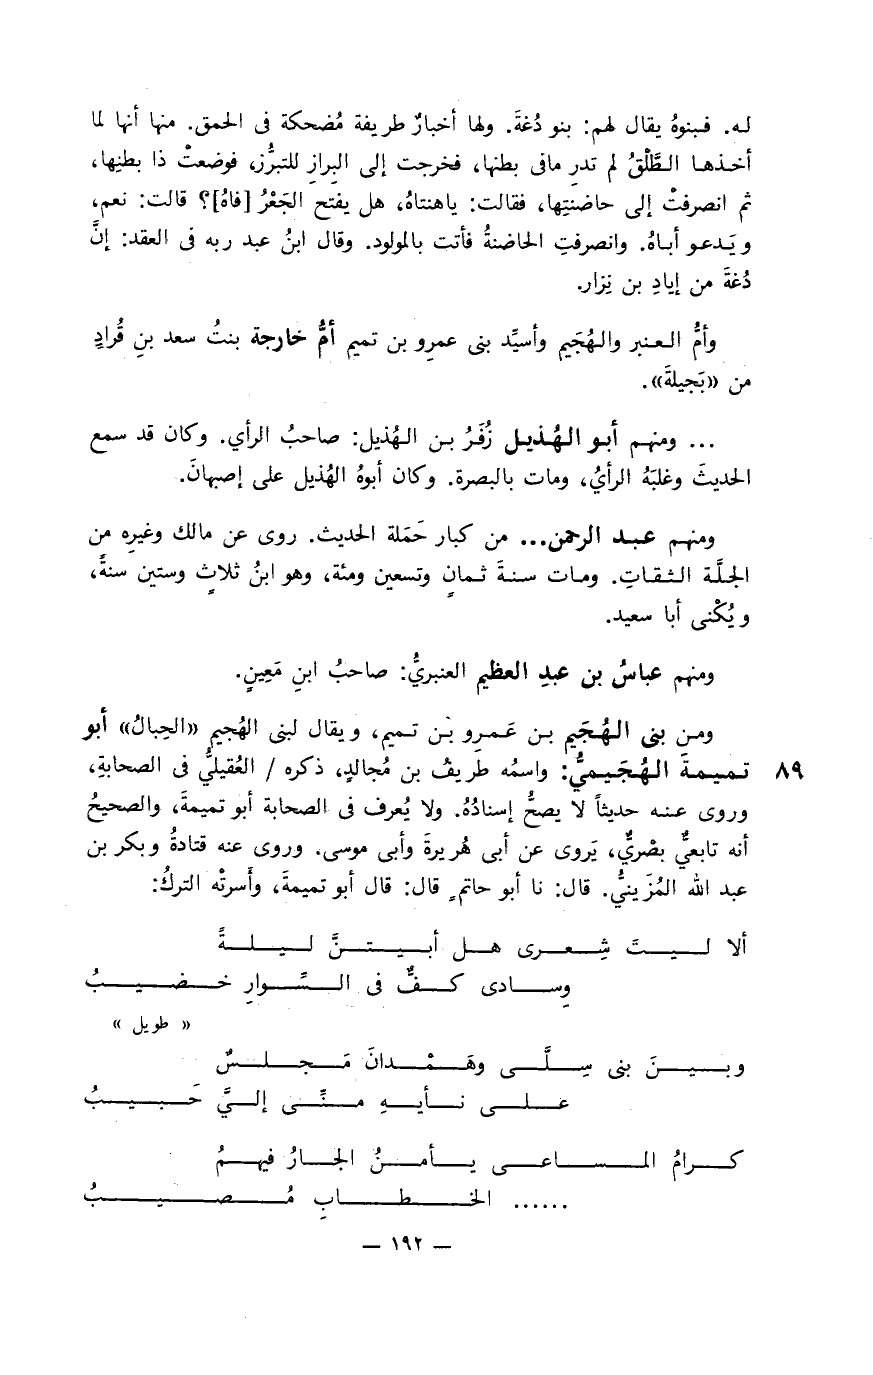 له. فبنوهُ يقال لهم: بنو دُغةَ. ولها أخبارٌ طريفة مُضحكة فى الحمق. منها أنها لما
أخذها الطَّلْقُ لم تدرِ مافى بطنها، فخرجت إلى البِرازِ للتبرُّز، فوضعتْ ذا بطنِها،
ثم انصرفتْ إلى حاضنتِها، فقالت: ياهنتاهُ، هل يفتح الجَعْرُ [فاهُ]؟ قالت: نعم،
ويَدعو أباهُ. وانصرفتِ الحاضنةُ فأتت بالمولود. وقال ابنُ عبد ربه فى العقد: إنَّ
دُغةَ من إيادِ بن نِزار.
وأمُّ العنبر والهُجَيم وأسيِّد بنى عمرِو بن تميم أمُّ خارجة بنتُ سعد بنِ قُرادٍ
من «بَجيلةَ».
... ومنهم أبو الهُذيل زُفَرُ بن الهُذيل: صاحبُ الرأي. وكان قد سمع
الحديثَ وغلبَهُ الرأيُ، ومات بالبصرة. وكان أبوهُ الهُذيل على إصبهانَ.
ومنهم عبد الرحمن... من كبار حَمَلة الحديث. روى عن مالك وغيرِه من
الجلَّة الثقاتِ. ومات سنةَ ثمانٍ وتسعين ومئة، وهو ابنُ ثلاثٍ وستين سنةً،
ويُكْنى أبا سعيد.
ومنهم عباسُ بن عبدِ العظيم العنبريُّ: صاحبُ ابنِ مَعِينٍ.
ومن بنى الهُجَيم بن عَمرِو بْن تميم، ويقال لبنى الهُجيم «الحِبالُ» أبو
٨٩ تميمةَ الهُجَيميُّ: واسمُه طريفُ بن مُجالدٍ، ذكره / العُقيليُّ فى الصحابةِ،
وروى عنه حديثاً لا يصحُّ إسنادُهُ. ولا يُعرف فى الصحابة أبو تميمةَ، والصحيحُ
أنه تابعيٌّ بصْريٌّ، يَروى عن أبى هُريرةَ وأبى موسى. وروى عنه قتادةُ وبكر بن
عبد الله المُزَينيُّ. قال: نا أبو حاتمٍ قال: قال أبو تميمةَ، وأَسرتْه التركُ:
ألا ليتَ شِعرى هل أبيتنَّ ليلةً
وِسادى كفٌّ فى السِّوارِ خضيبُ
« طويل »
وبينَ بنى سِلَّى وهَمْدانَ مَجلسٌ
على نأيهِ منِّى إليَّ حَبيبُ
كرامُ المساعى يأمنُ الجارُ فيهمُ
...... الخطابِ مُصيبُ
— ١٩٢ —